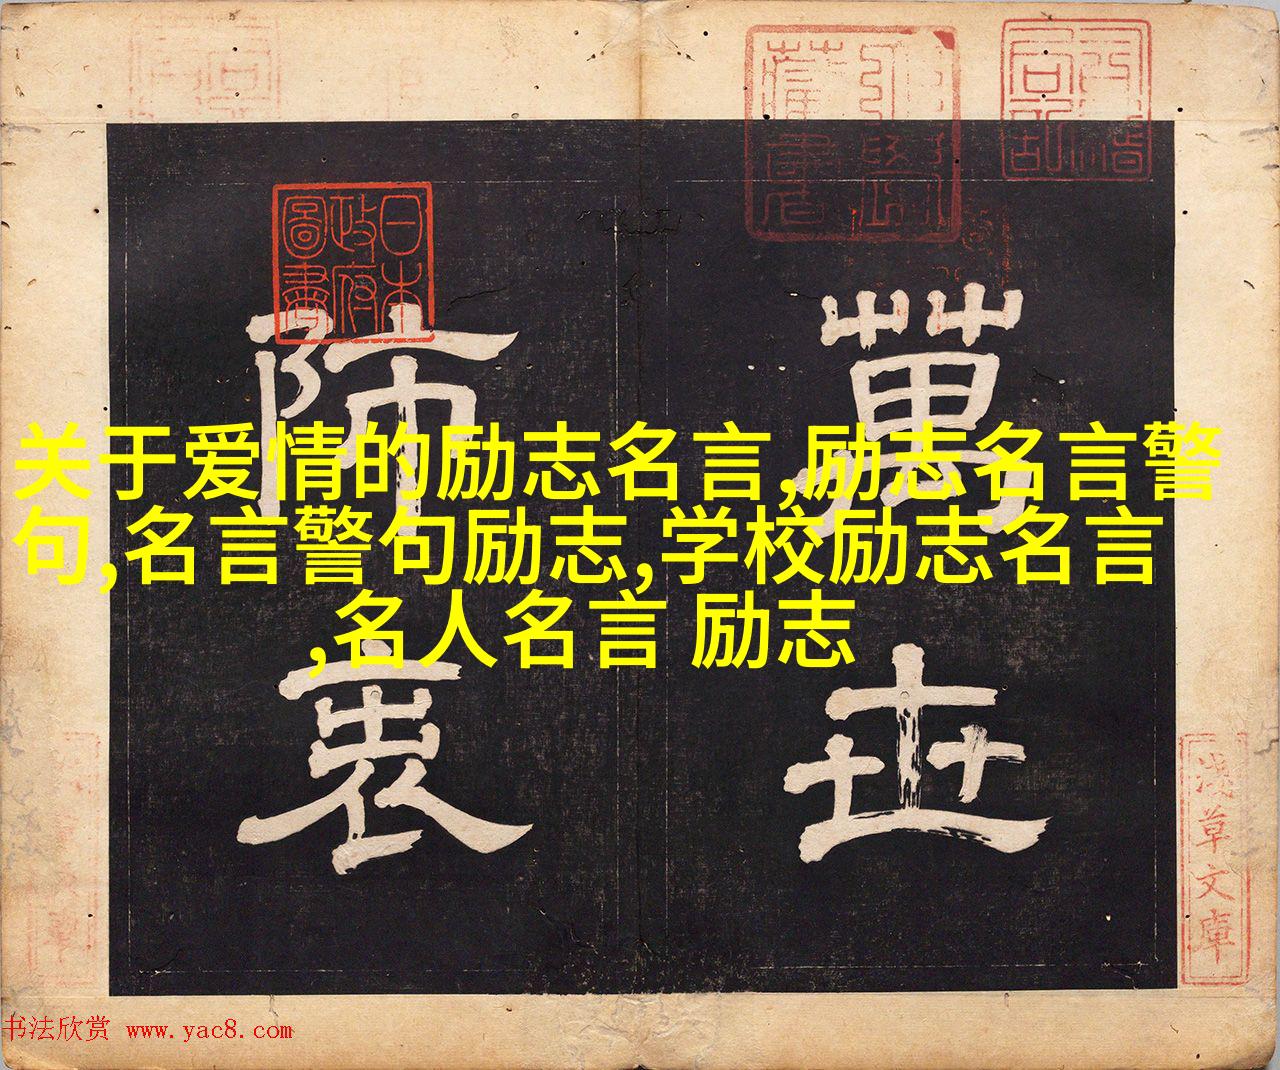 关于爱情的励志名言,励志名言警
句,名言警句励志,学校励志名言
,名人名言 励志
萬世
師表
日本
政府
圖書
淺草文庫
书法欣赏 www.yac8.com